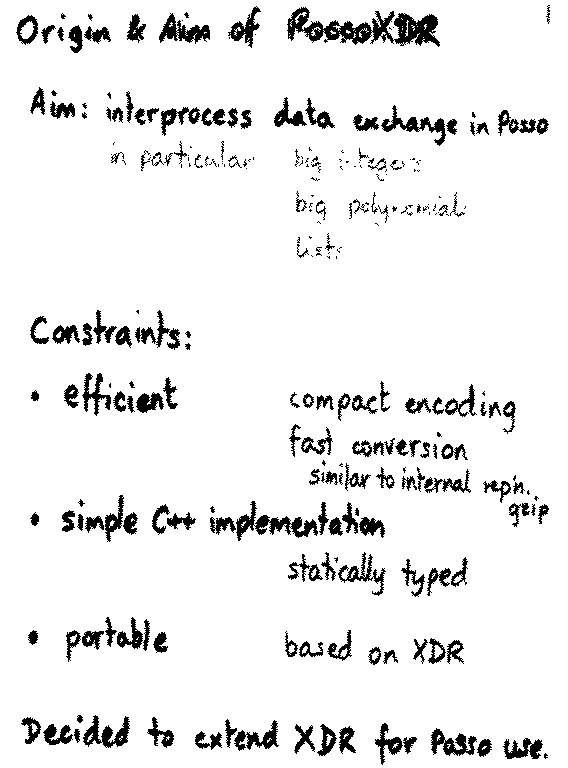 1
Origin & Aim of PossoXDR
Aim: interprocess data exchange in Posso
in particular big integers
big polynomials
lists
Constraints:
• efficient compact encoding
fast conversion
similar to internal rep'n.
gzip
• simple C++ implementation
statically typed
• portable based on XDR
Decided to extend XDR for Posso use.